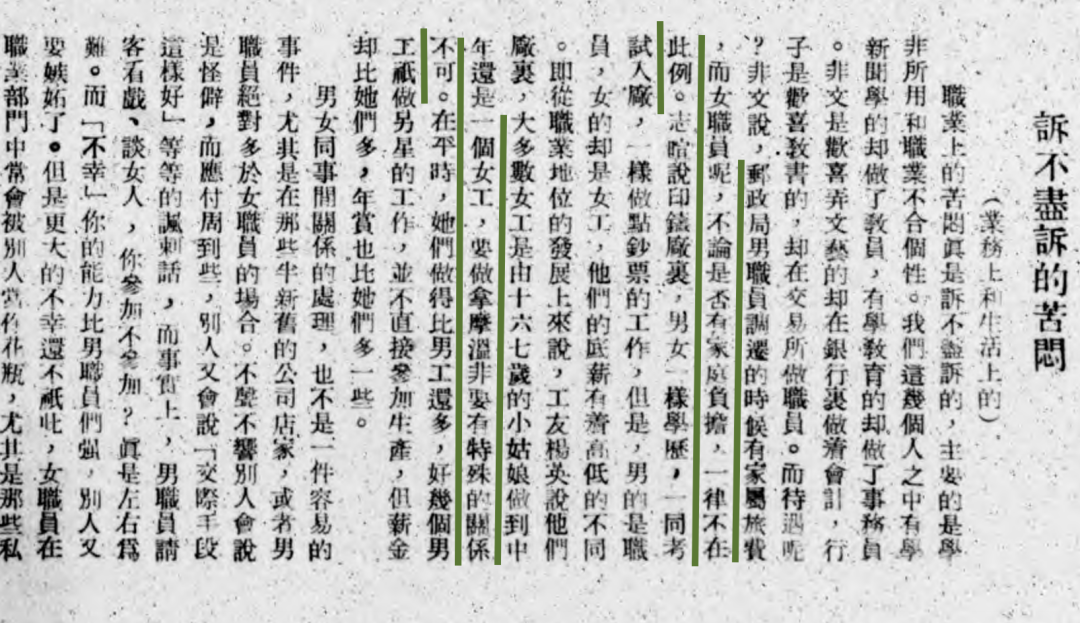 訴不盡訴的苦悶
（業務上和生活上的）
職業上的苦悶眞是訴不盡訴的，主要的是學
非所用和職業不合個性。我們這幾個人之中有學
新聞學的却做了敎員，有學敎育的却做了事務員
。非文是歡喜弄文藝的却在銀行裏做着會計，行
子是歡喜敎書的，却在交易所做職員。而待遇呢
？非文說，郵政局男職員調遷的時候有家屬旅費
，而女職員呢，不論是否有家庭負擔，一律不在
此例。志暄說印鈔廠裏，男女一樣學歷，一同考
試入廠，一樣做點鈔票的工作，但是，男的是職
員，女的却是女工，他們的底薪有着高低的不同
。即從職業地位的發展上來說，工友楊英說他們
廠裏，大多數女工是由十六七歲的小姑娘做到中
年還是一個女工，要做拿摩溫非要有特殊的關係
不可。在平時，她們做得比男工還多，好幾個男
工祇做另星的工作，並不直接參加生產，但薪金
却比她們多，年賞也比她們多一些。
男女同事間關係的處理，也不是一件容易的
事件，尤其是在那些半新舊的公司店家，或者男
職員絕對多於女職員的場合。不聲不響別人會說
是怪僻，而應付周到些，別人又會說「交際手段
這樣好」等等的諷刺話，而事實上，男職員請
客看戲、談女人，你參加不參加？眞是左右爲
難。而「不幸」你的能力比男職員們強，別人又
要嫉妬了。但是更大的不幸還不祇此，女職員在
職業部門中常會被別人當作花瓶，尤其是那些私